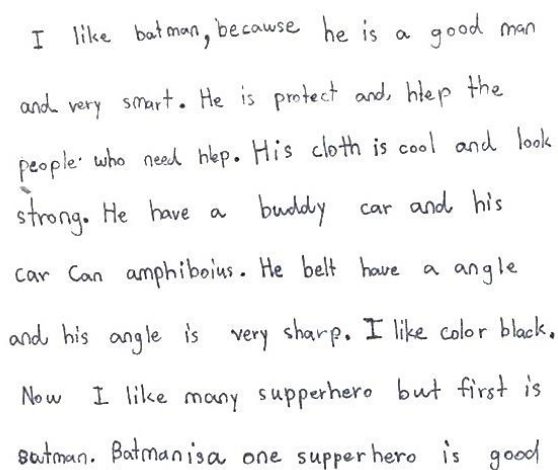 I like batman, because he is a good man
and very smart. He is protect and, htep the
people who need hlep. His cloth is cool and look
strong. He have a buddy car and his
car Can amphiboius. He belt have a angle
and his angle is very sharp. I like color black.
Now I like many supperhero but first is
satman. Batmanisa one supperhero is good